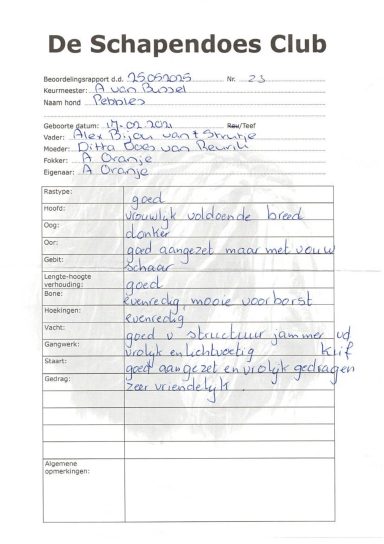 De Schapendoes Club
Beoordelingsrapport d.d. 25052025 Nr. 23
Keurmeester: A van Bussel
Naam hond Pebbles
Geboorte datum: 17-02-2021 Reu/Teef
Vader: Alex Bijou van't Struutje
Moeder: Ditta Does van Reurik
Fokker: A Oranje
Eigenaar: A Oranje
Rastype: goed
Hoofd: vrouwlyk voldoende breed
Oog: donker
Oor: goed aangezet maar met vouw
Gebit: schaar
Lengte-hoogte
verhouding: goed
Bone: evenredig mooie voorborst
Hoekingen: evenredig
Vacht: goed v structuur jammer vd
Gangwerk: vrolyk en lichtvoetig Klif
Staart: goed aangezet en vrolyk gedragen
Gedrag: zeer vriendelyk.
Algemene
opmerkingen: